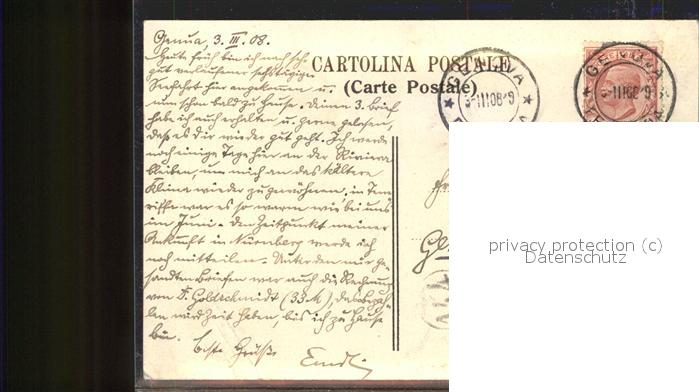 Genua, 3. III. 08.
Heute früh bin ich nach sehr
gut verlaufener sechstägiger
Seefahrt hier angekommen u.
nun schon bald zu Hause. Deinen 3. Brief
habe ich auch erhalten u. gerne gelesen,
dass es dir wieder gut geht. Ich werde
noch einige Tage hier an der Riviera
bleiben, um mich an das kältere
Klima wieder zu gewöhnen, in Tene
riffa war es so warm wie bei uns
im Juni. - Den Zeitpunkt meiner
Ankunft in Nürnberg werde ich
noch mitteilen. Unter den mir ge
sandten Briefen war auch die Rechnung
von F. Goldschmidt (33 M), das Bezah
len wird Zeit haben, bis ich zu Hause
bin.
Beste Grüße
CARTOLINA POSTALE
(Carte Postale)
GENOVA
3-III 08-9
GENOVA
3-III 08-9
privacy protection (c)
Datenschutz